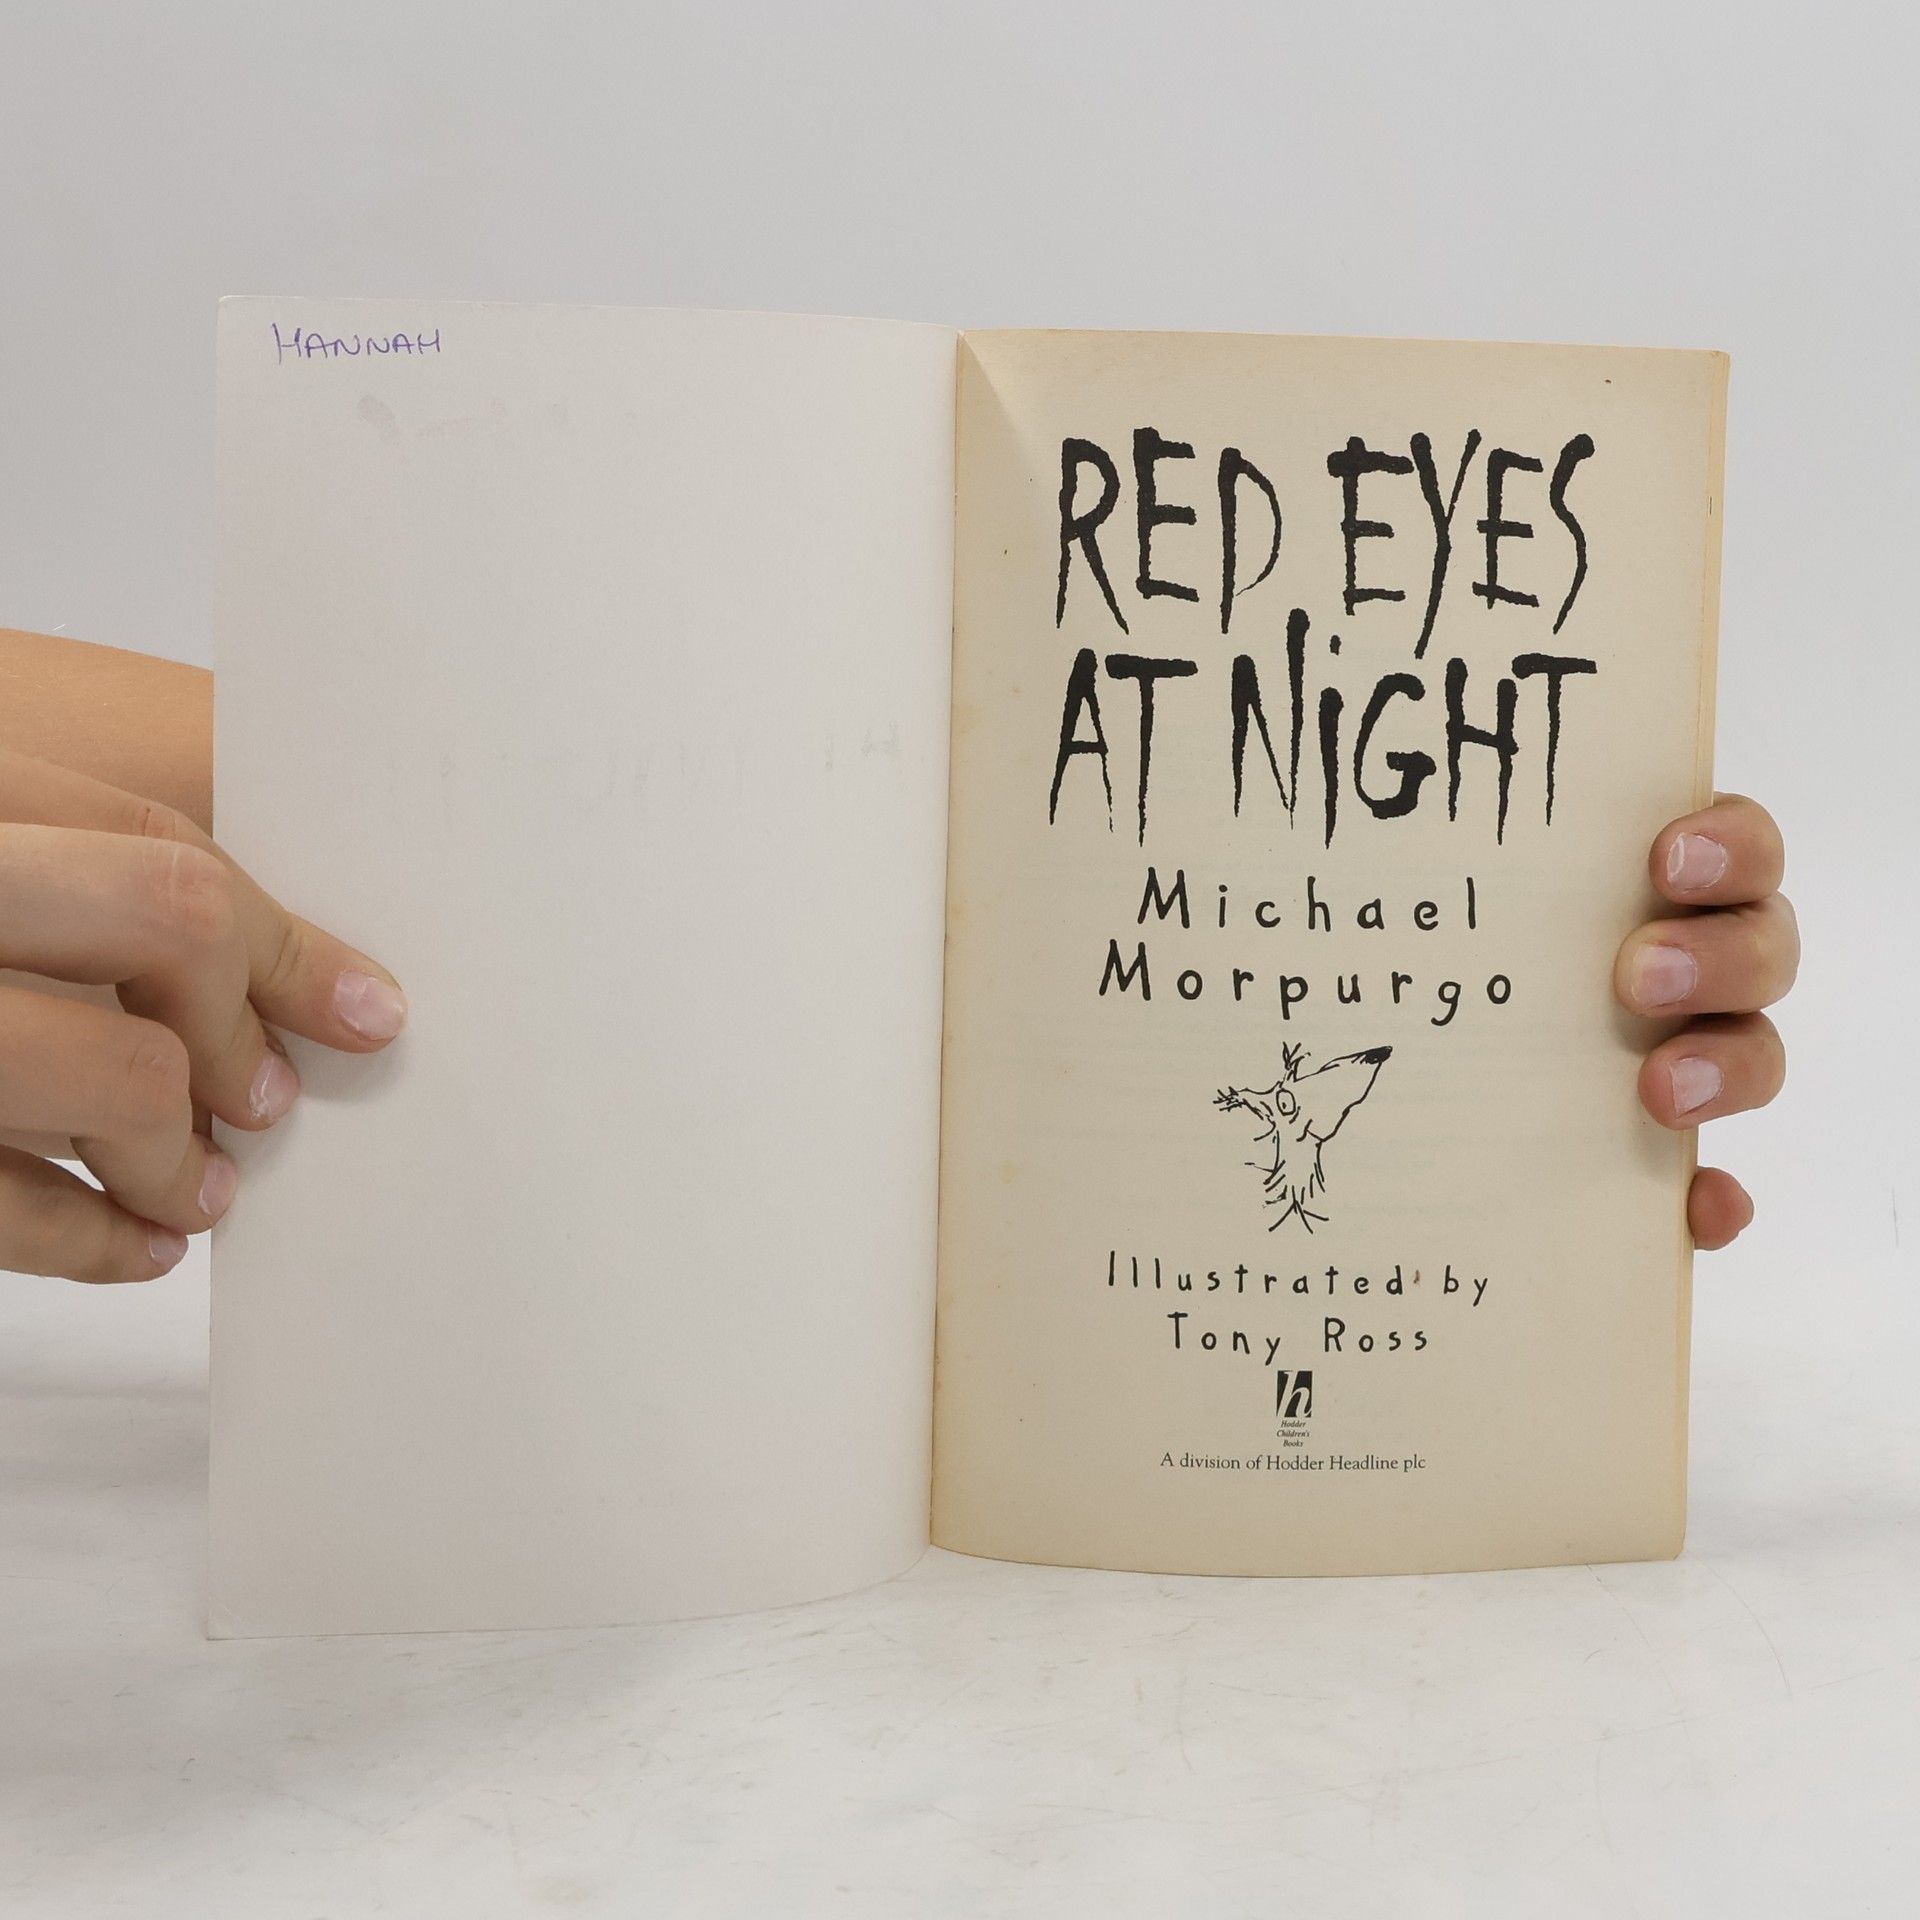 HANNAH
RED EYES
AT NiGHT
Michael
Morpurgo
Illustrated by
Tony Ross
h
Hodder
Children's
Books
A division of Hodder Headline plc